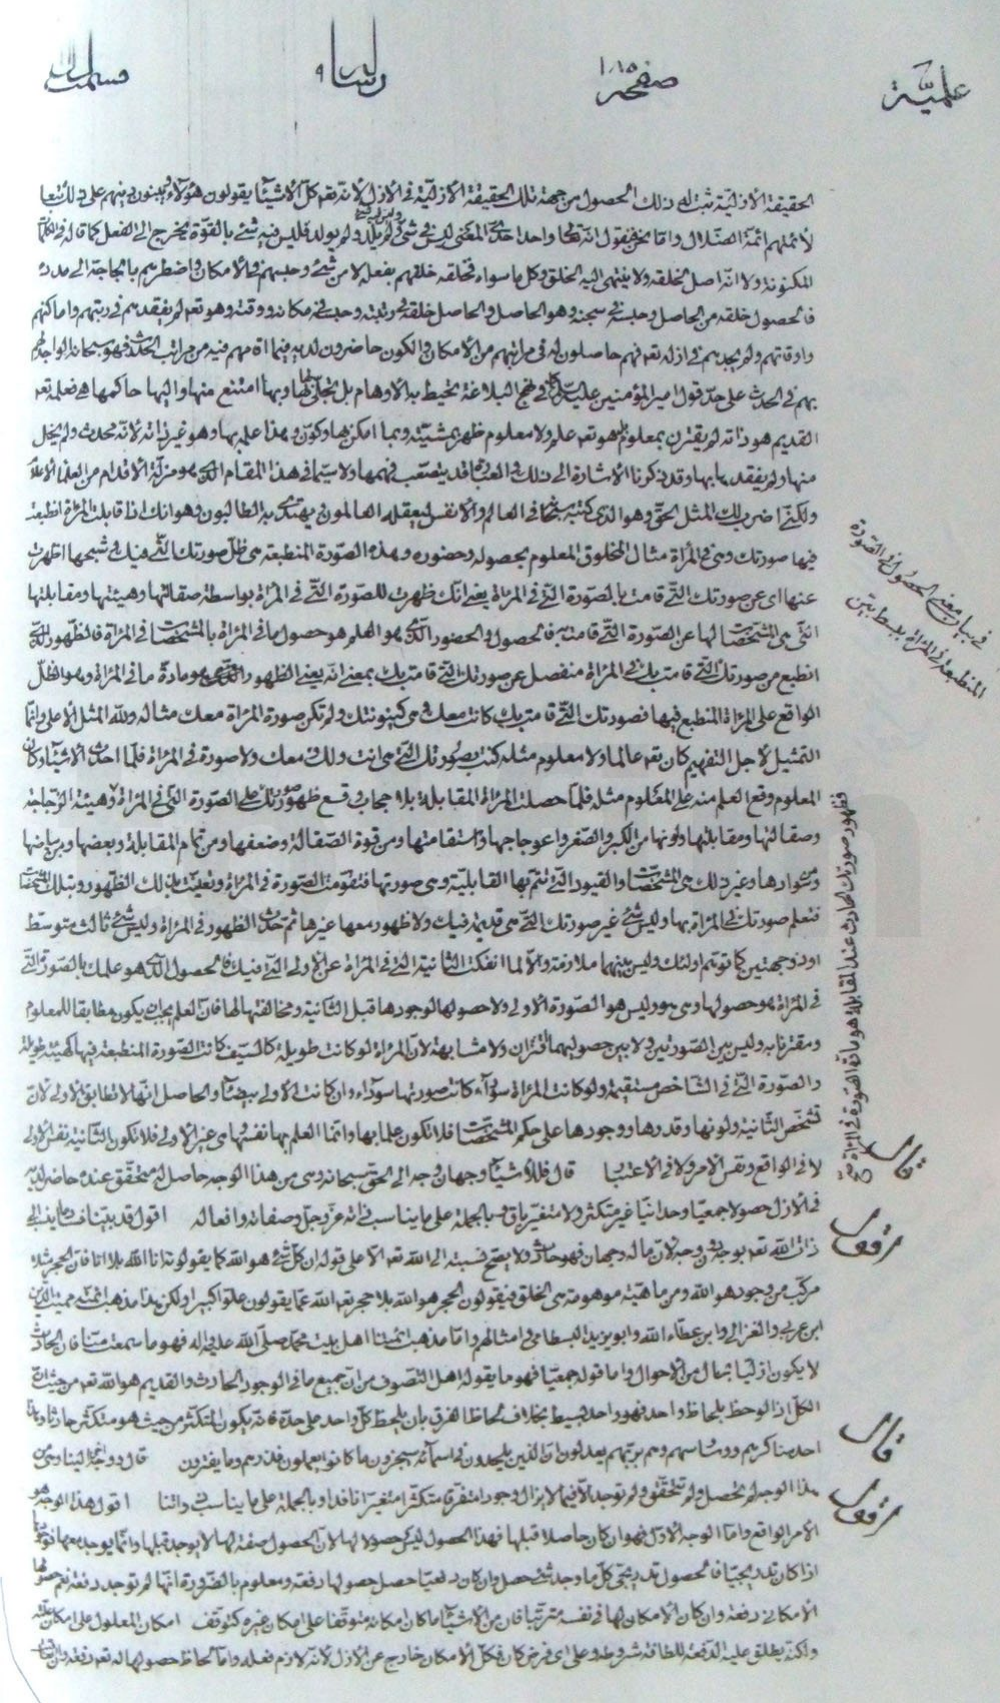 علميّة صفحة ١٨٥ رسالة ٩ قسمت
الحقيقة الأزليّة ثبت له ذلك الحصول من جهة تلك الحقيقة الأزليّة في الأزل لأنه تعالى كلّ الأشياء يقولون هؤلاء ويبنون دينهم على ذلك تبعا
لأئمتهم أئمة الضلال وأما نحن فنقول انه تعالى واحد احدي المعنى ليس في شيء ولم يلد ولم يولد فليس فيه شيء بالقوّة يخرج الى الفعل كما قاله في الكلمات
المكنونة ولا انه اصل الخلقه ولا ينتهي اليه الخلق وكل ما سواه فخلقه خلقهم بفعله لا من شيء وحبسهم في الامكان واضطرهم بالحاجة الى مدده
فالحصول خلقه من الحاصل وحبسه في سجنه وهو الحاصل والحاصل خلقه في رتبته وحبسه في مكانه ووقته وهو تعم لم يفقدهم في رتبهم واماكنهم
واوقاتهم ولم يجدهم في ازله تعم فهم حاصلون له في مراتبهم من الامكان والكون حاضرون لديه فيما اقامهم فيه من مراتب الحدث فهو سبحانه الواجد لهم
بهم في الحدث على حدّ قول امير المؤمنين عليه السلام في نهج البلاغة لا تحيط به الاوهام بل تجلى لها بها وبها امتنع منها واليها حاكمها فعلمه تعم
القديم هو ذاته لم يقترن بمعلوم بل هو تعم علم ولا معلوم ظهر بمشيّته وبما امكن بها وكون وبهذا علم بها وهو غير ذاته لانه محدث ولم يخل
منها ولم يفقدها بها وقد ذكرنا الاشارة الى ذلك والعبارة قد يتصعّب فهمها ولا سيّما في هذا المقام الذي هو مزلّة الاقدام من العلماء الاعلام
ولكنّي اضرب لك المثل الحق وهو الذي كتبه سبحانه في العالم والانفس ليعقله العالمون يهتدي به الطالبون وهو انك اذا قابلت المرآة انطبعت
فيها صورتك وهي في المرآة مثال المخلوق المعلوم بحصوله وحضوره وبهذه الصّورة المنطبعة هي ظلّ صورتك التي هي فيك في شبحها اظهرت
عنها اي عن صورتك التي قامت بالصّورة التي في المرآة يعني انك ظهرت للصّورة التي في المرآة بواسطة صقالتها وهيئتها ومقابلتها
التي هي المشخّصات لها عن الصّورة التي قامت به فالحصول والحضور الذي هو العلم هو حصول ما في المرآة بالمشخّصات في المرآة فالظهور الذي
انطبع من صورتك التي قامت بك في المرآة منفصل عن صورتك التي قامت بك بمعنى انه يعني الظهور الذي هو مادة ما في المرآة وهو الظلّ
الواقع على المرآة المنطبع فيها فصورتك التي قامت بك كانت معك وهي كينونتك ولم تكن صورة المرآة معك مثاله ولله المثل الاعلى وانما
التمثيل لاجل التفهيم كان تعم عالما ولا معلوم مثله كنت بصورتك التي هي انت وذلك معك ولا صورة في المرآة فلمّا احدث الاشياء وكان
المعلوم وقع العلم منه على المعلوم مثله فلمّا حصلت المرآة المقابلة بلا حجاب وقع ظهور صورتك على الصّورة التي في المرآة وهيئة الزجاجة
وصقالتها ومقابلتها ولونها من الكبر والصّغر واعوجاجها واستقامتها ومن قوة الصّقالة وضعفها ومن تمام المقابلة وبعضها ومن بياضها
وسوادها وغير ذلك هي المشخّصات والقيود التي تتم بها القابلية وهي صورتها فتقومت الصّورة في المرآة وتعيّنت بذلك الظهور وبتلك المشخّصات
فتعلم صورتك في المرآة بها وليس شيء غير صورتك التي هي قديمة فيك ولا ظهور معها غيرها ثم حدث الظهور في المرآة وليس شيء ثالث متوسّط
او ذو جهتين كما توهّم اولئك وليس بينهما ملازمة والا لما انفكت الثانية التي في المرآة عن الاولى التي فيك فالحصول الذي هو علمك بالصّورة التي
في المرآة هو حصولها وهي هو وليس هو الصّورة الاولى ولا حصولها لوجودها قبل الثانية ومخالفتها لها فان العلم يجب ان يكون مطابقا للمعلوم
ومقترنا به وليس بين الصّورتين ولا بين حصوليهما اقتران ولا مشابهة لان المرآة لو كانت طويلة كالسيف كانت الصّورة المنطبعة فيها كهيئته طويلة
والصّورة التي في الشاخص مستقيمة ولو كانت المرآة سوداء كانت صورتها سوداء وان كانت الاولى بيضاء والحاصل انها لا تطابق الاولى لان
تشخّص الثانية ولونها وقدرها ووجودها على حكم المشخّصات فلا تكون علما بها وانما العلم بها نفسها وهي غير الاولى فلا تكون الثانية نفس الاولى
لا في الواقع ونفس الامر ولا في الاعتبار قال فللاشياء وجهان وجه الى الحق سبحانه وهي من هذا الوجه حاصل له متحقّق عنده حاضر لديه
في الازل حصولا جمعيّا وحدانيّا غير متكثّر ولا متغيّر باق وبالجملة على ما يناسب ذاته عزّ وجلّ وصفاته وافعاله اقول قد بيّنّا
ذات الله تعم بوجه دون وجه لان ماله وجهان فهو حادث ولا يصحّ نسبته الى الله تعم الا على قوله ان كل شيء هو الله كما يقولونه انا الله بلا انا فان الحجر مثلا
مركّب من وجود هو الله ومن ماهيّة موهومة هي الخلق فيقولون الحجر هو الله بلا حجر تعم الله عمّا يقولون علوّا كبيرا ولكن هذا مذهب ائمّتهم مميت الدين
ابن عربي والغزالي وابن عطاء الله وابو يزيد البسطامي وامثالهم وامّا مذهب ائمّتنا اهل بيت محمّد صلّى الله عليه واله فهو ما سمعت منّا فان الحادث
لا يكون ازليّا بحال من الاحوال واما قوله جمعيّا فهو ما يقوله اهل التصوف من ان جميع ما في الوجود الحادث والقديم هو الله تعم من حيث ان
الكلّ اذا لوحظ بلحاظ واحد فهو واحد بسيط بخلاف لحاظ الفرق بان يلحظ كلّ واحد على حدة فانه يكون المتكثّر من حيث هو متكثّر حادثا وهذا
احد مناكرهم ووساسهم وهم بربّهم يعدلون ان الذين يلحدون في اسمائه سيجزون ما كانوا يعملون فذرهم وما يفترون قال ووجه الينا وهي من
هذا الوجه لم يحصل ولم تتحقّق ولم توجد الا فيما لا يزال وجودا متفرقا متكثّرا متغيّرا نافدا وبالجملة على ما يناسب ذواتنا اقول هذا الوجه هو
الامر الواقع وامّا الوجه الاول فهو ان كان حاصلا قبلها فهذا الحصول ليس حصولا لها لان الحصول صفة لها لا يوجد قبلها وانما يوجد معها
اذا كان تدريجيّا فالحصول تدريجي كلّ ما وجد شيء حصل وان كان دفعيّا حصل حصولها دفعة ومعلوم بالضّرورة انها لم توجد دفعة نعم حصولها
الامكاني دفعة وان كان الامكان لها في نفسه مترتبا فان من الاشياء ما كان امكانه متوقفا على امكان غيره كتوقف امكان المعلول على امكان علّته
ولكنّه يطلق عليه الدفعة للطافة شروطه وعلى اي فرض كان فكل الامكان خارج عن الازل لانه لازم فعله وامّا لحاظ حصولها له تعم دفعة
في بيان معنى الحصول في الصّورة
المنطبعة في المرآة
فظهور صورتك الحادث عند المقابلة هو مادة الصّورة في المرآة
قال
اقول
قال
اقول